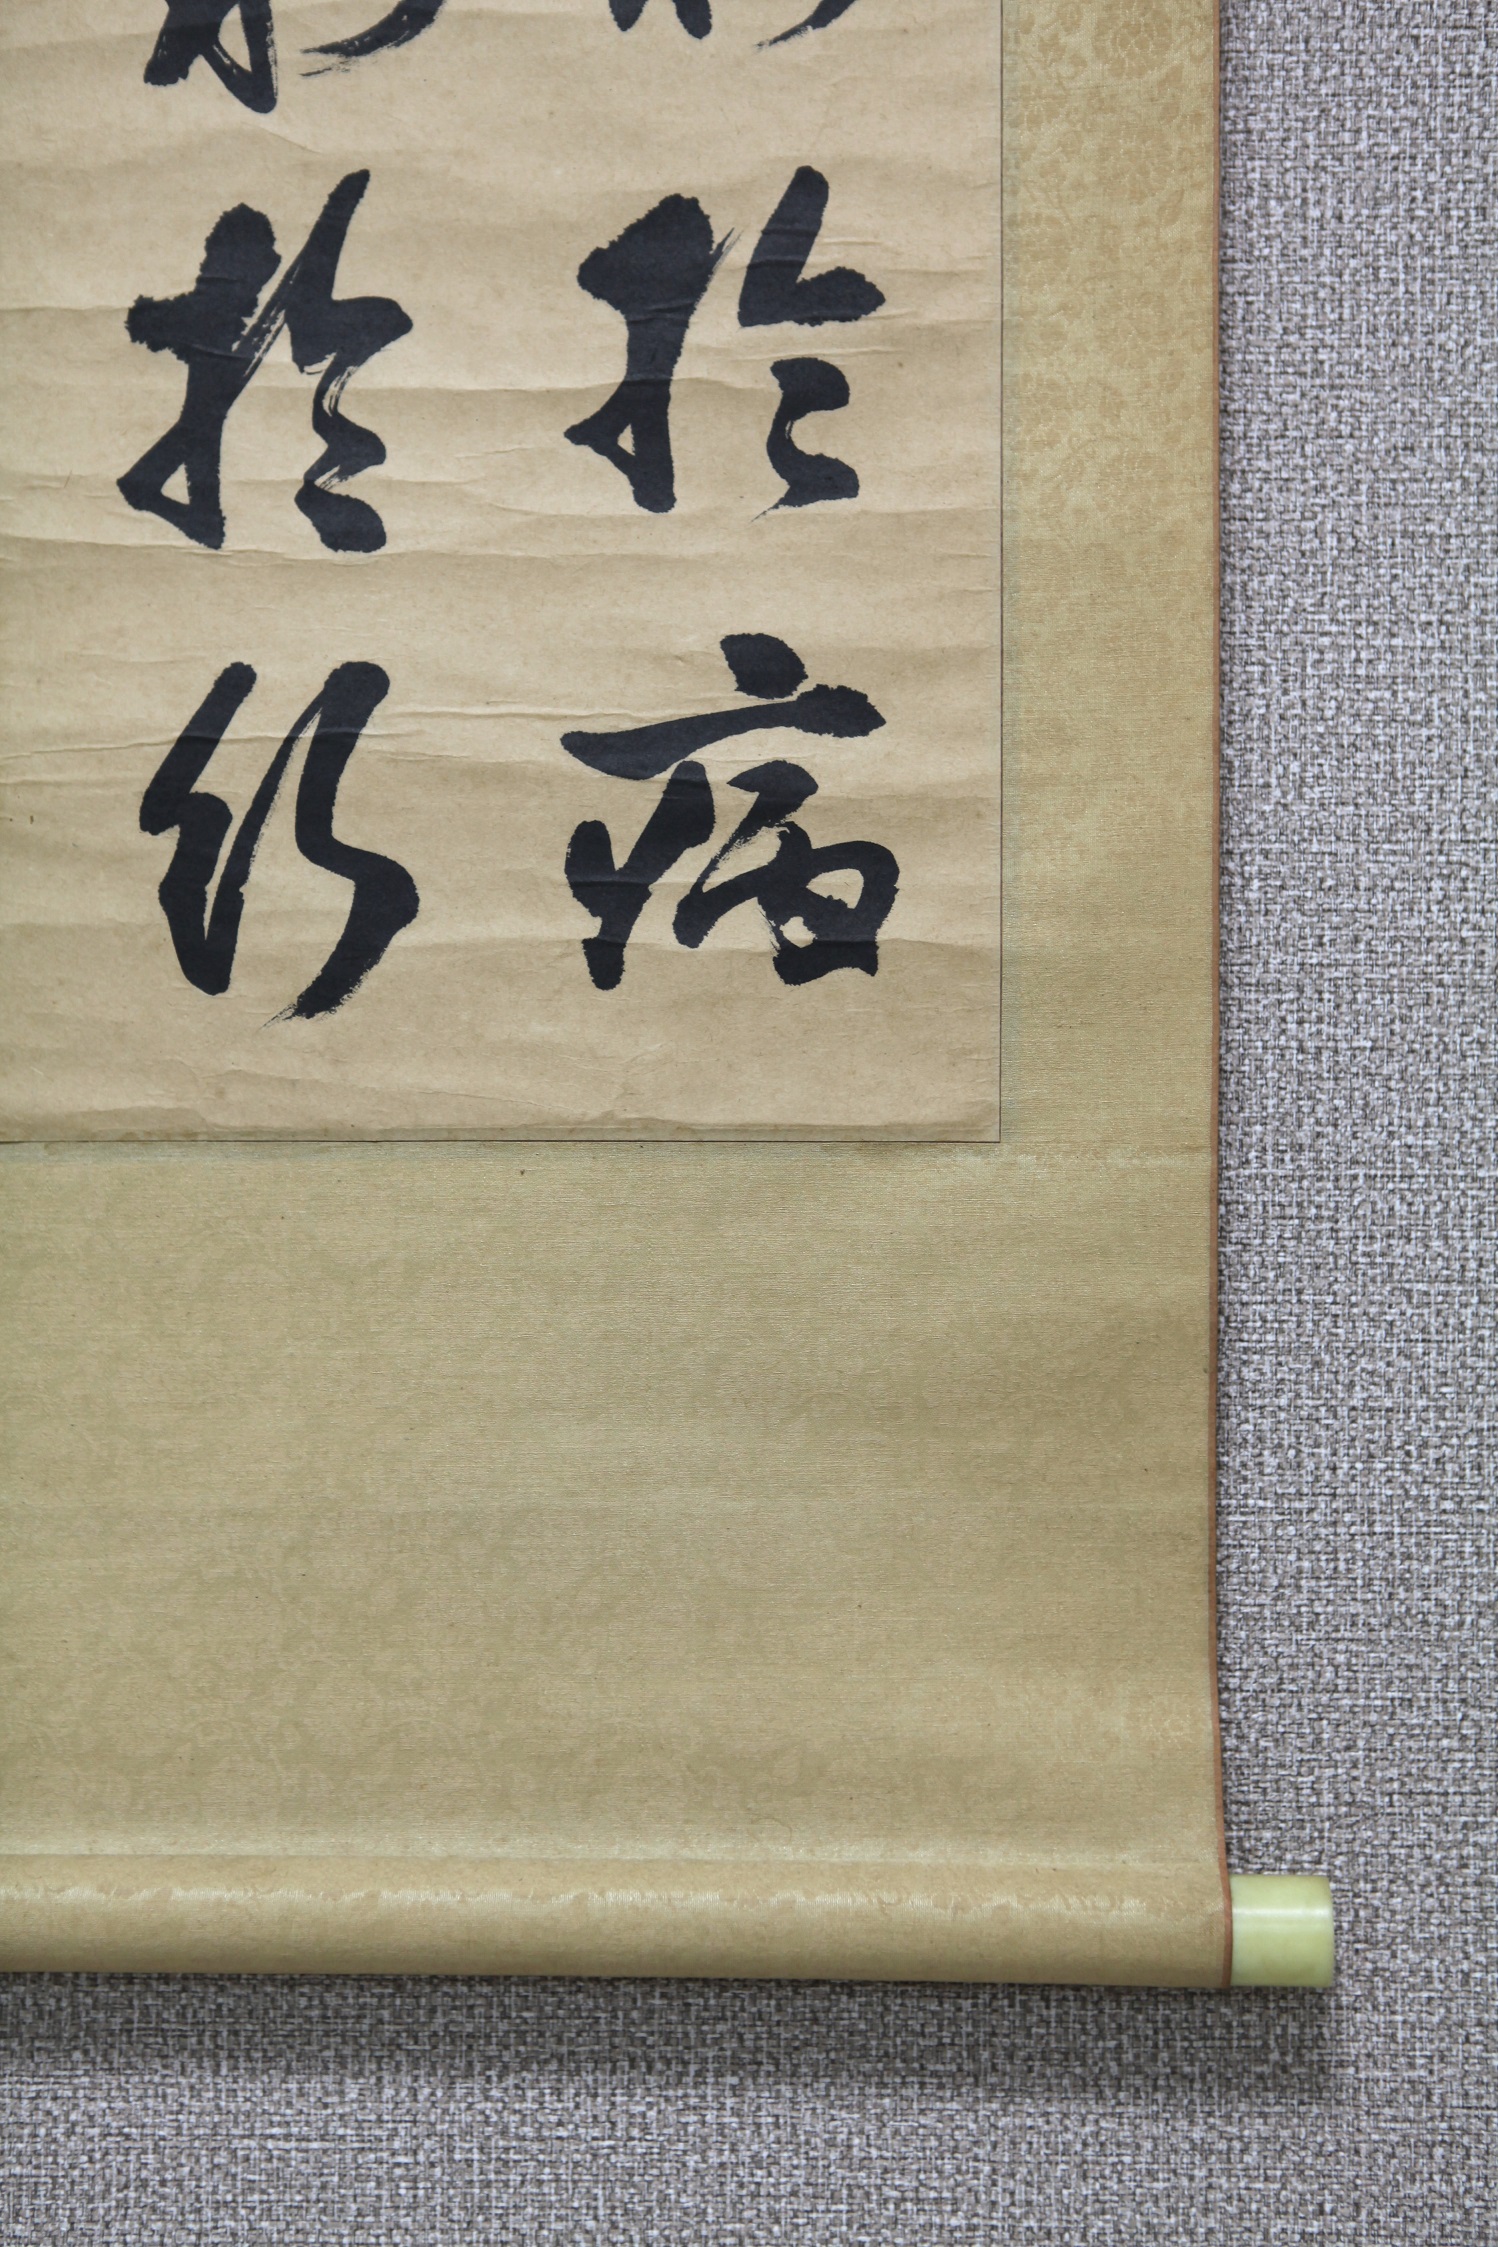 於病
於行